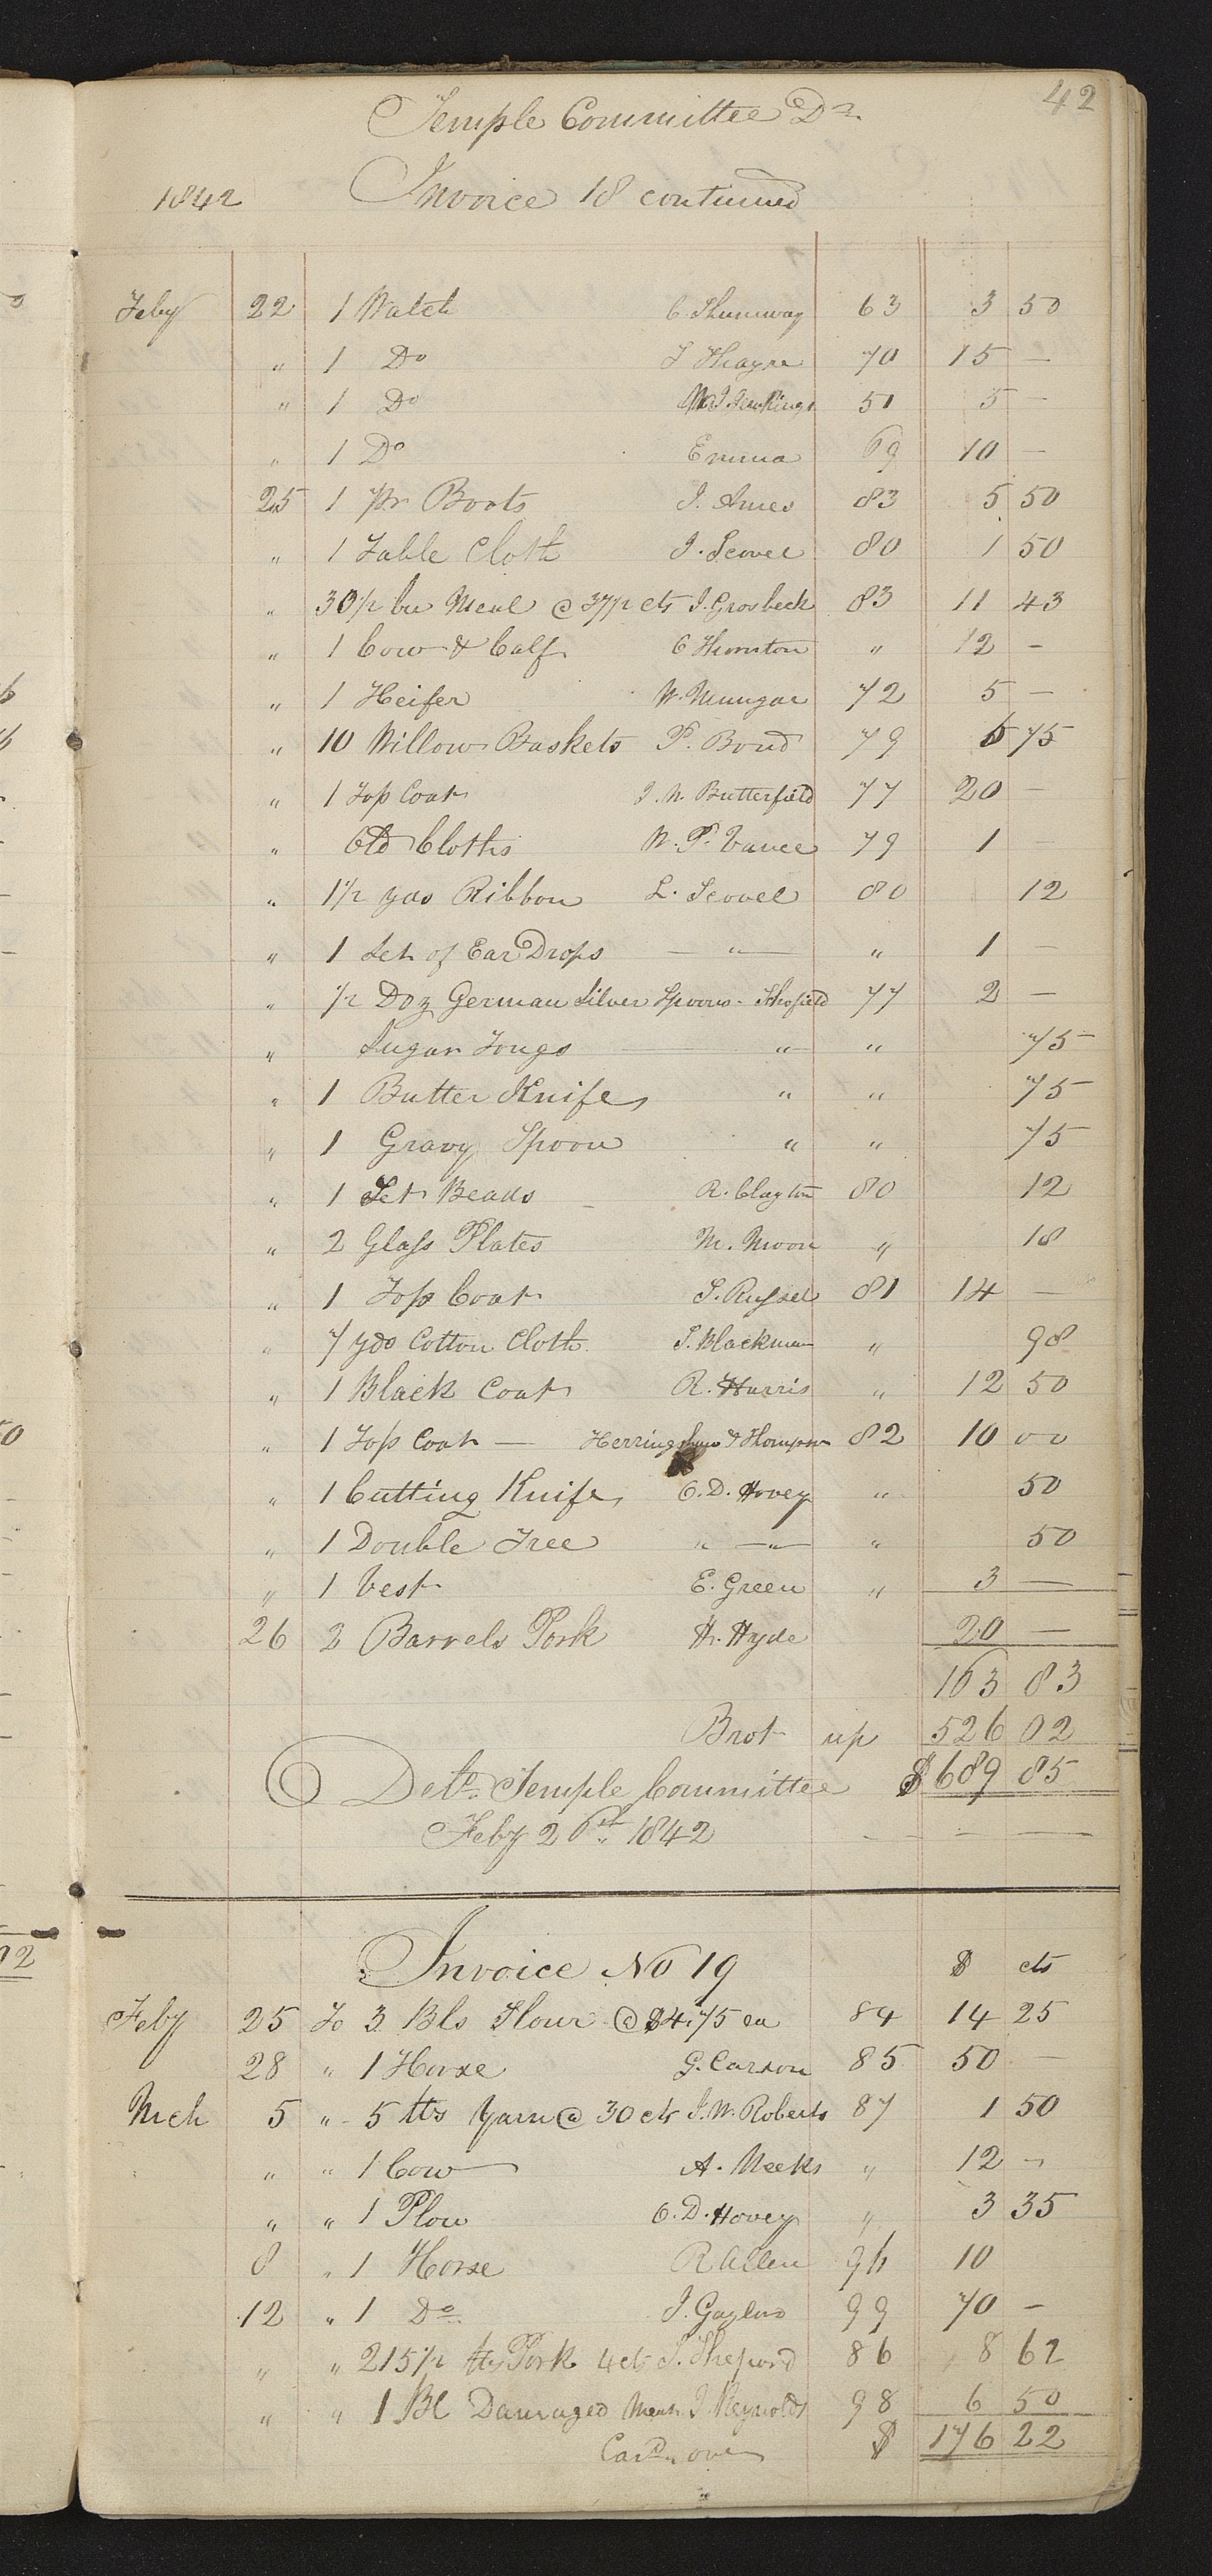 42
Temple Committee Dr.
1842 Invoice 18 continued
Feby 22 1 Watch C. Shumway 63 3 50
" 1 Do T Thayre 70 15 —
" 1 Do Jenkings 51 5 —
" 1 Do Emma 69 10 —
25 1 pr Boots I. Ames 83 5 50
" 1 Table Cloth L. Scovel 80 1 50
" 30 1/2 bu Meal @ 37 1/2 cts J. Grosbeck 83 11 43
" 1 Cow & Calf E Thornton " 12 —
" 1 Heifer W. Mungar 72 5 —
" 10 Willow Baskets P. Bond 79 6 75
" 1 Top Coat J. W. Butterfield 77 20 —
" Old Cloths W. P. Vance 79 1 —
" 1 1/2 yds Ribbon L. Scovel 80 12
" 1 Set of Ear Drops — " — " 1 —
" 1/2 Doz German Silver Spoons - Schofield 77 2 —
" Sugar Tongs " " 75
" 1 Butter Knife " " 75
" 1 Gravy Spoon " " 75
" 1 Set Beads R. Clayton 80 12
" 2 Glass Plates M. Moon " 18
" 1 Top Coat S. Russel 81 14 —
" 7 yds Cotton Cloth S. Blackman " 98
" 1 Black Coat R. Harris " 12 50
" 1 Top Coat — Herringshaw & Thompson 82 10 00
" 1 Cutting Knife O. D. Hovey " 50
" 1 Double Tree " — " — " 50
" 1 Vest E. Green " 3 —
26 2 Barrels Pork H. Hyde 20 —
163 83
Brot up 526 02
Deld. Temple Committee $689 85
Feby 26th 1842 — — —
Invoice No 19 $ cts
Feby 25 To 3 Bls Flour @ $4.75 ea 84 14 25
28 " 1 Horse G. Carson 85 50 —
Mch 5 " 5 lbs Yarn @ 30 cts J. W. Roberts 87 1 50
" " 1 Cow A. Meeks " 12 —
" " 1 Plow O. D. Hovey " 3 35
8 " 1 Horse R Allen 96 10
12 " 1 Do J. Gaylord 99 70 —
" " 215 1/2 lbs Pork 4 cts S. Shepord 86 8 62
" " 1 Bl Damaged J. Reynolds 98 6 50
Card over $ 176 22